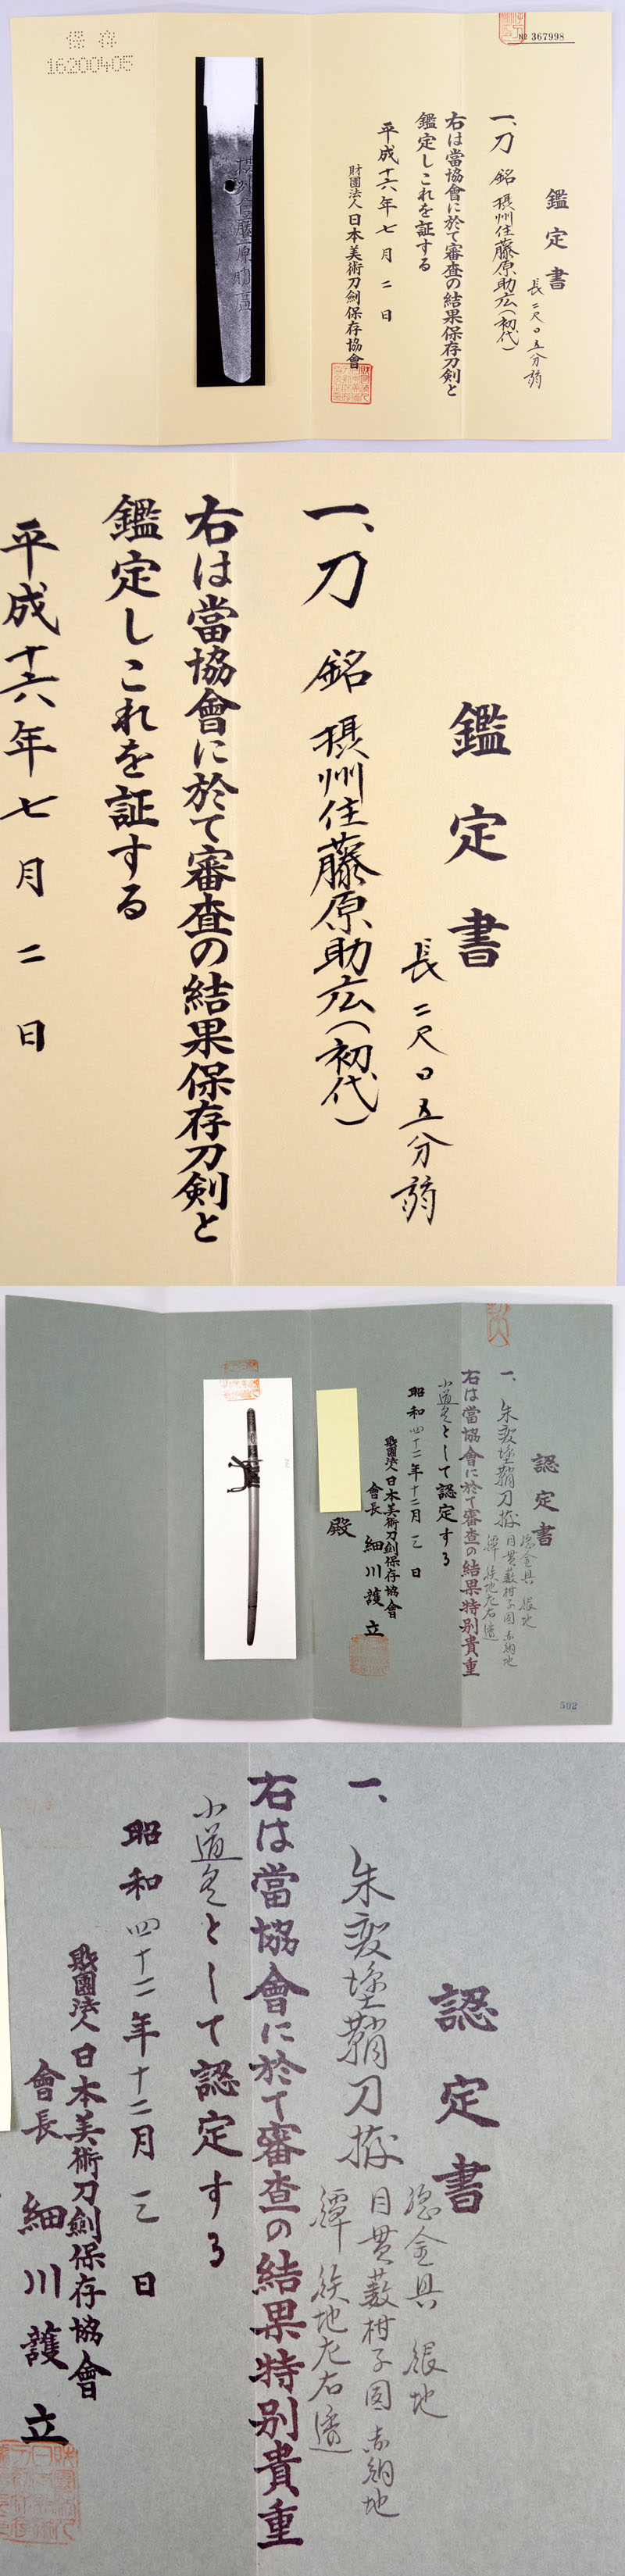 保存
16200405
№ 367998
鑑定書
長二尺〇五分弱
一、刀 銘 摂州住藤原助広(初代)
右は當協會に於て審査の結果保存刀剣と
鑑定しこれを証する
平成十六年七月二日
財團法人日本美術刀劍保存協會
鑑定書
長二尺〇五分弱
一、刀 銘 摂州住藤原助広(初代)
右は當協會に於て審査の結果保存刀剣と
鑑定しこれを証する
平成十六年七月二日
認定書
一、朱変塗鞘刀拵
総金具 銀地
目貫藪柑子図 赤銅地
鐔 鉄地左右透
右は當協會に於て審査の結果特別貴重
小道具として認定する
昭和四十二年十二月三日
財團法人日本美術刀劍保存協會
會長 細川護立
殿
502
認定書
総金具 銀地
一、朱変塗鞘刀拵
目貫藪柑子図 赤銅地
鐔 鉄地左右透
右は當協會に於て審査の結果特別貴重
小道具として認定する
昭和四十二年十二月三日
財團法人日本美術刀劍保存協會
會長 細川護立